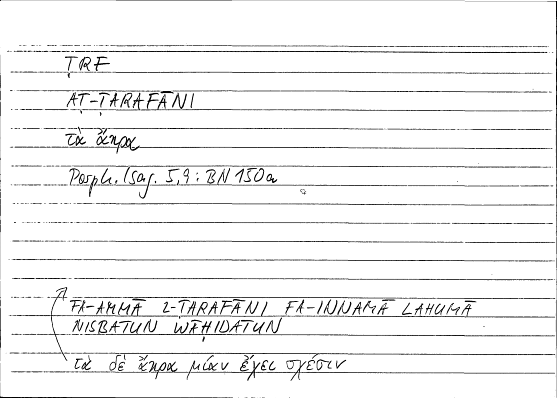 ṬRF
AṬ-ṬARAFĀNI
τὰ ἄκρα
Porph. Isag. 5,9: BN 150a
FA-AMMĀ Ṭ-ṬARAFĀNI FA-INNAMĀ LAHUMĀ
NISBATUN WĀḤIDATUN
τὰ δὲ ἄκρα μίαν ἔχει σχέσιν